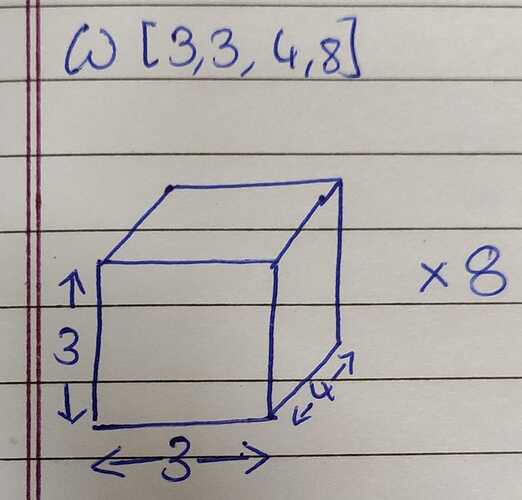 ω [3,3, 4,8]
× 8
3
4
3